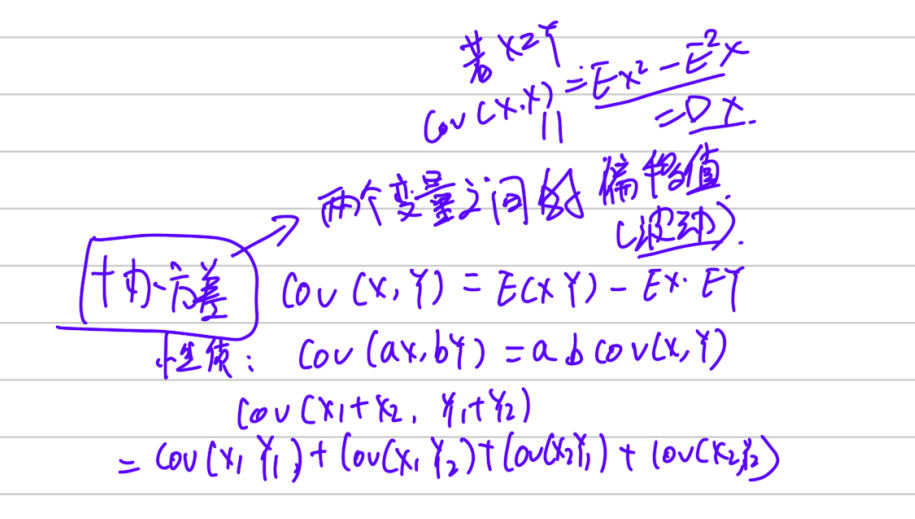 若X=Y
Cov(X,X)=EX²-E²X
=DX.
两个变量之间的偏移值
(波动).
协方差 Cov(X,Y)=E(XY)-EX·EY
性质: Cov(aX,bY)=abCov(X,Y)
Cov(X₁+X₂, Y₁+Y₂)
=Cov(X₁Y₁)+Cov(X₁Y₂)+Cov(X₂Y₁)+Cov(X₂Y₂)